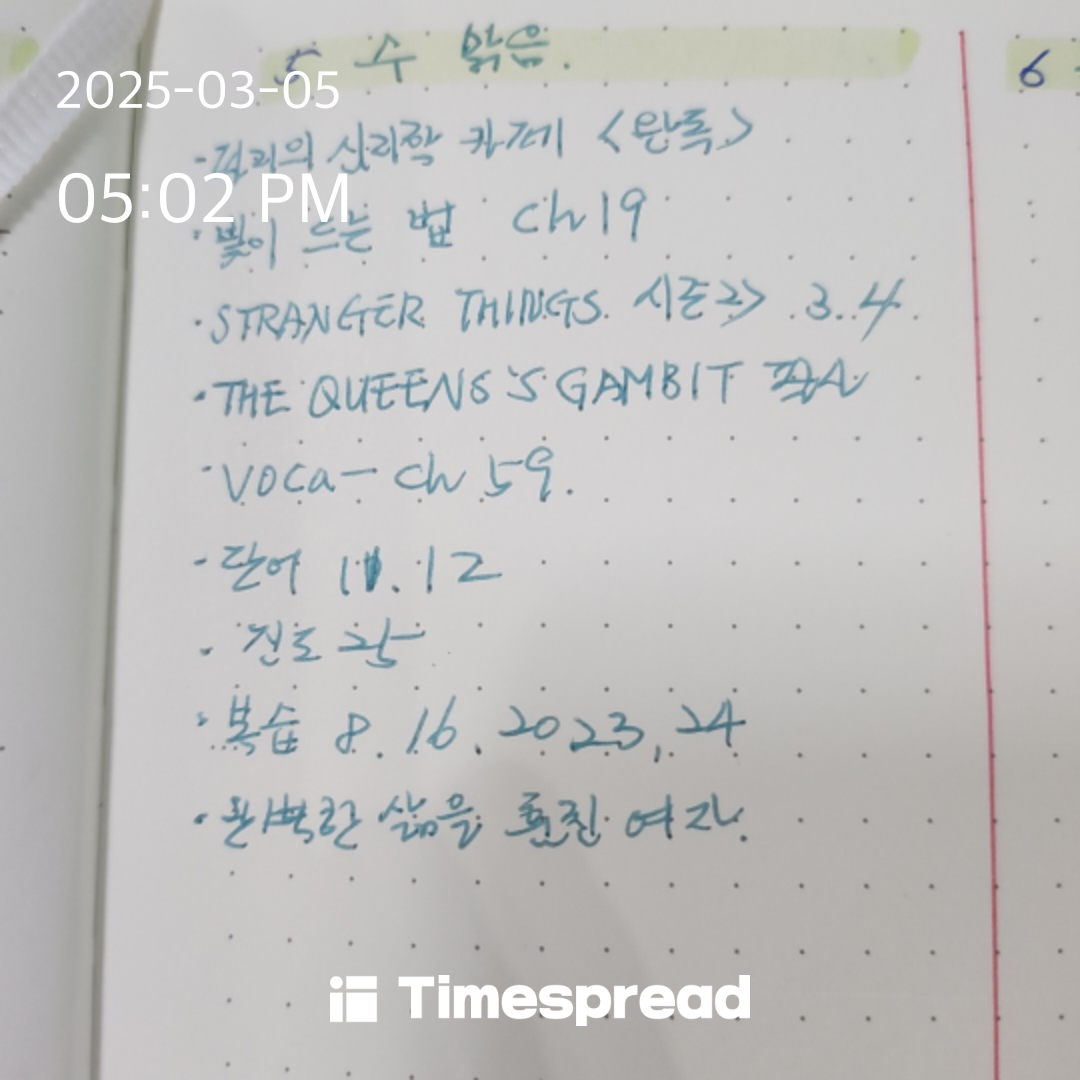 5 수 맑음.
6
2025-03-05
· 심리학 카페 <완독>
05:02 PM
· 빛이 드는 법 Ch 19
· STRANGER THINGS. 시즌2> 3.4.
· THE QUEENS'S GAMBIT
· Voca - Ch 59.
- 단어 11.12
· 진도 25
· 복습 8.16.2023,24
· 완벽한 삶을 훔친 여자.
Timespread